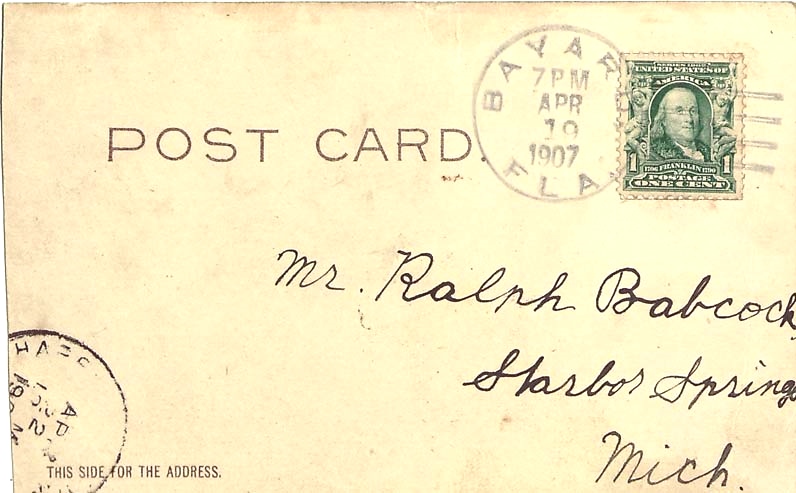 POST CARD.
BAYARD
7 PM
APR
19
1907
FLA.
SERIES 1902
UNITED STATES OF
AMERICA
1 1
1706 FRANKLIN 1790
POSTAGE
ONE CENT
Mr. Ralph Babcock
Harbor Springs
Mich.
THIS SIDE FOR THE ADDRESS.